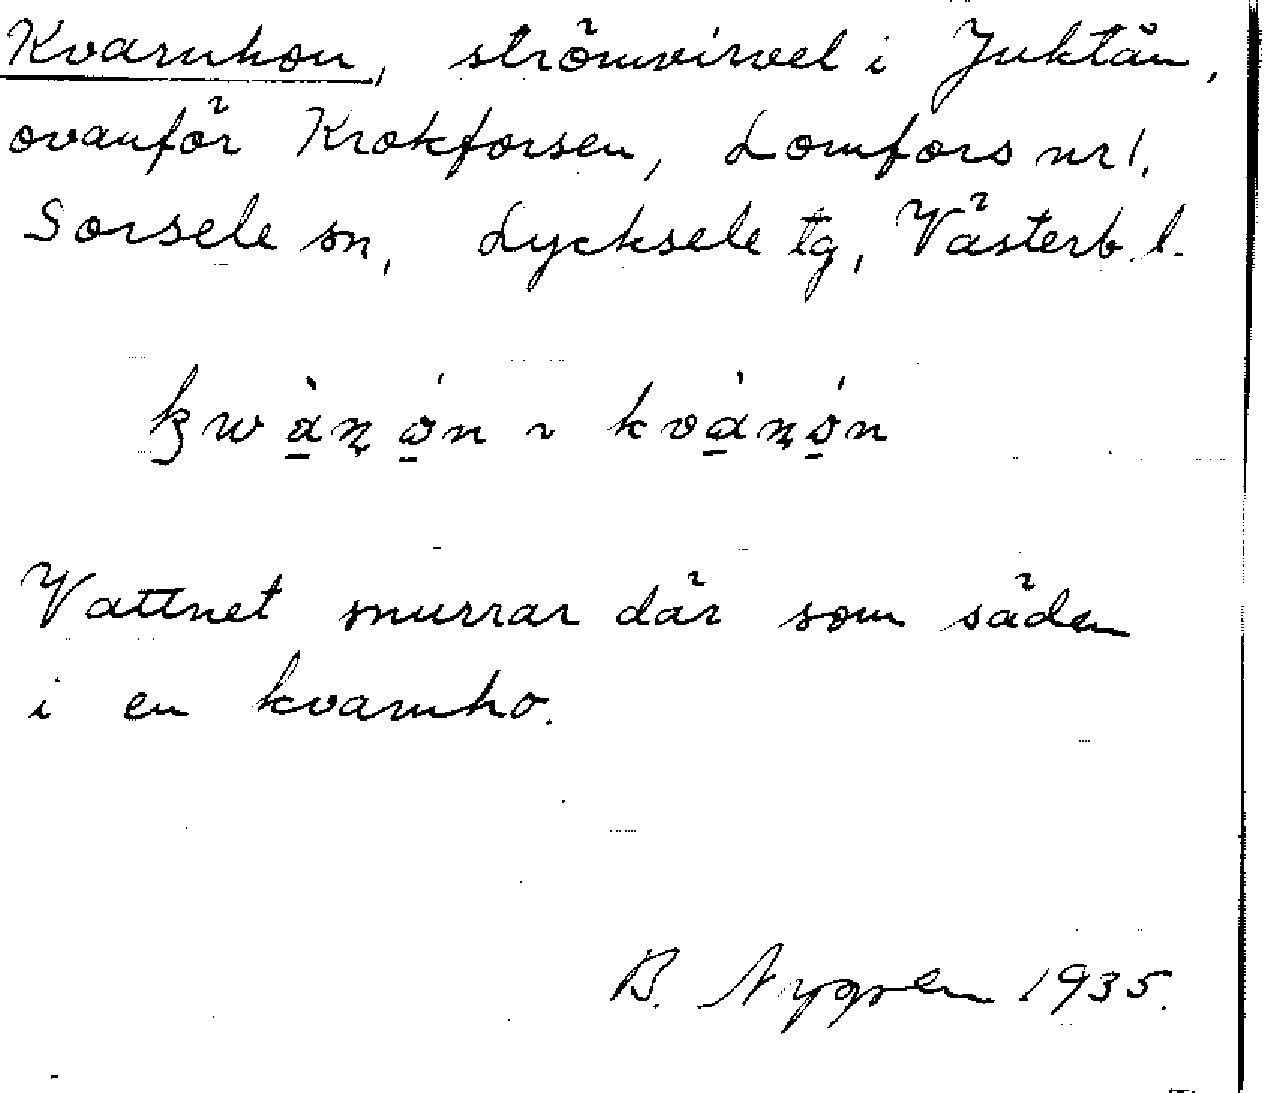 Kvarnhon, strömvirvel i Juktån,
ovanför Krokforsen, Lomfors nr 1.
Sorsele sn, Lycksele tg, Västerb. l.
Vattnet snurrar där som säden
i en kvarnho.
B. Nygren 1935.